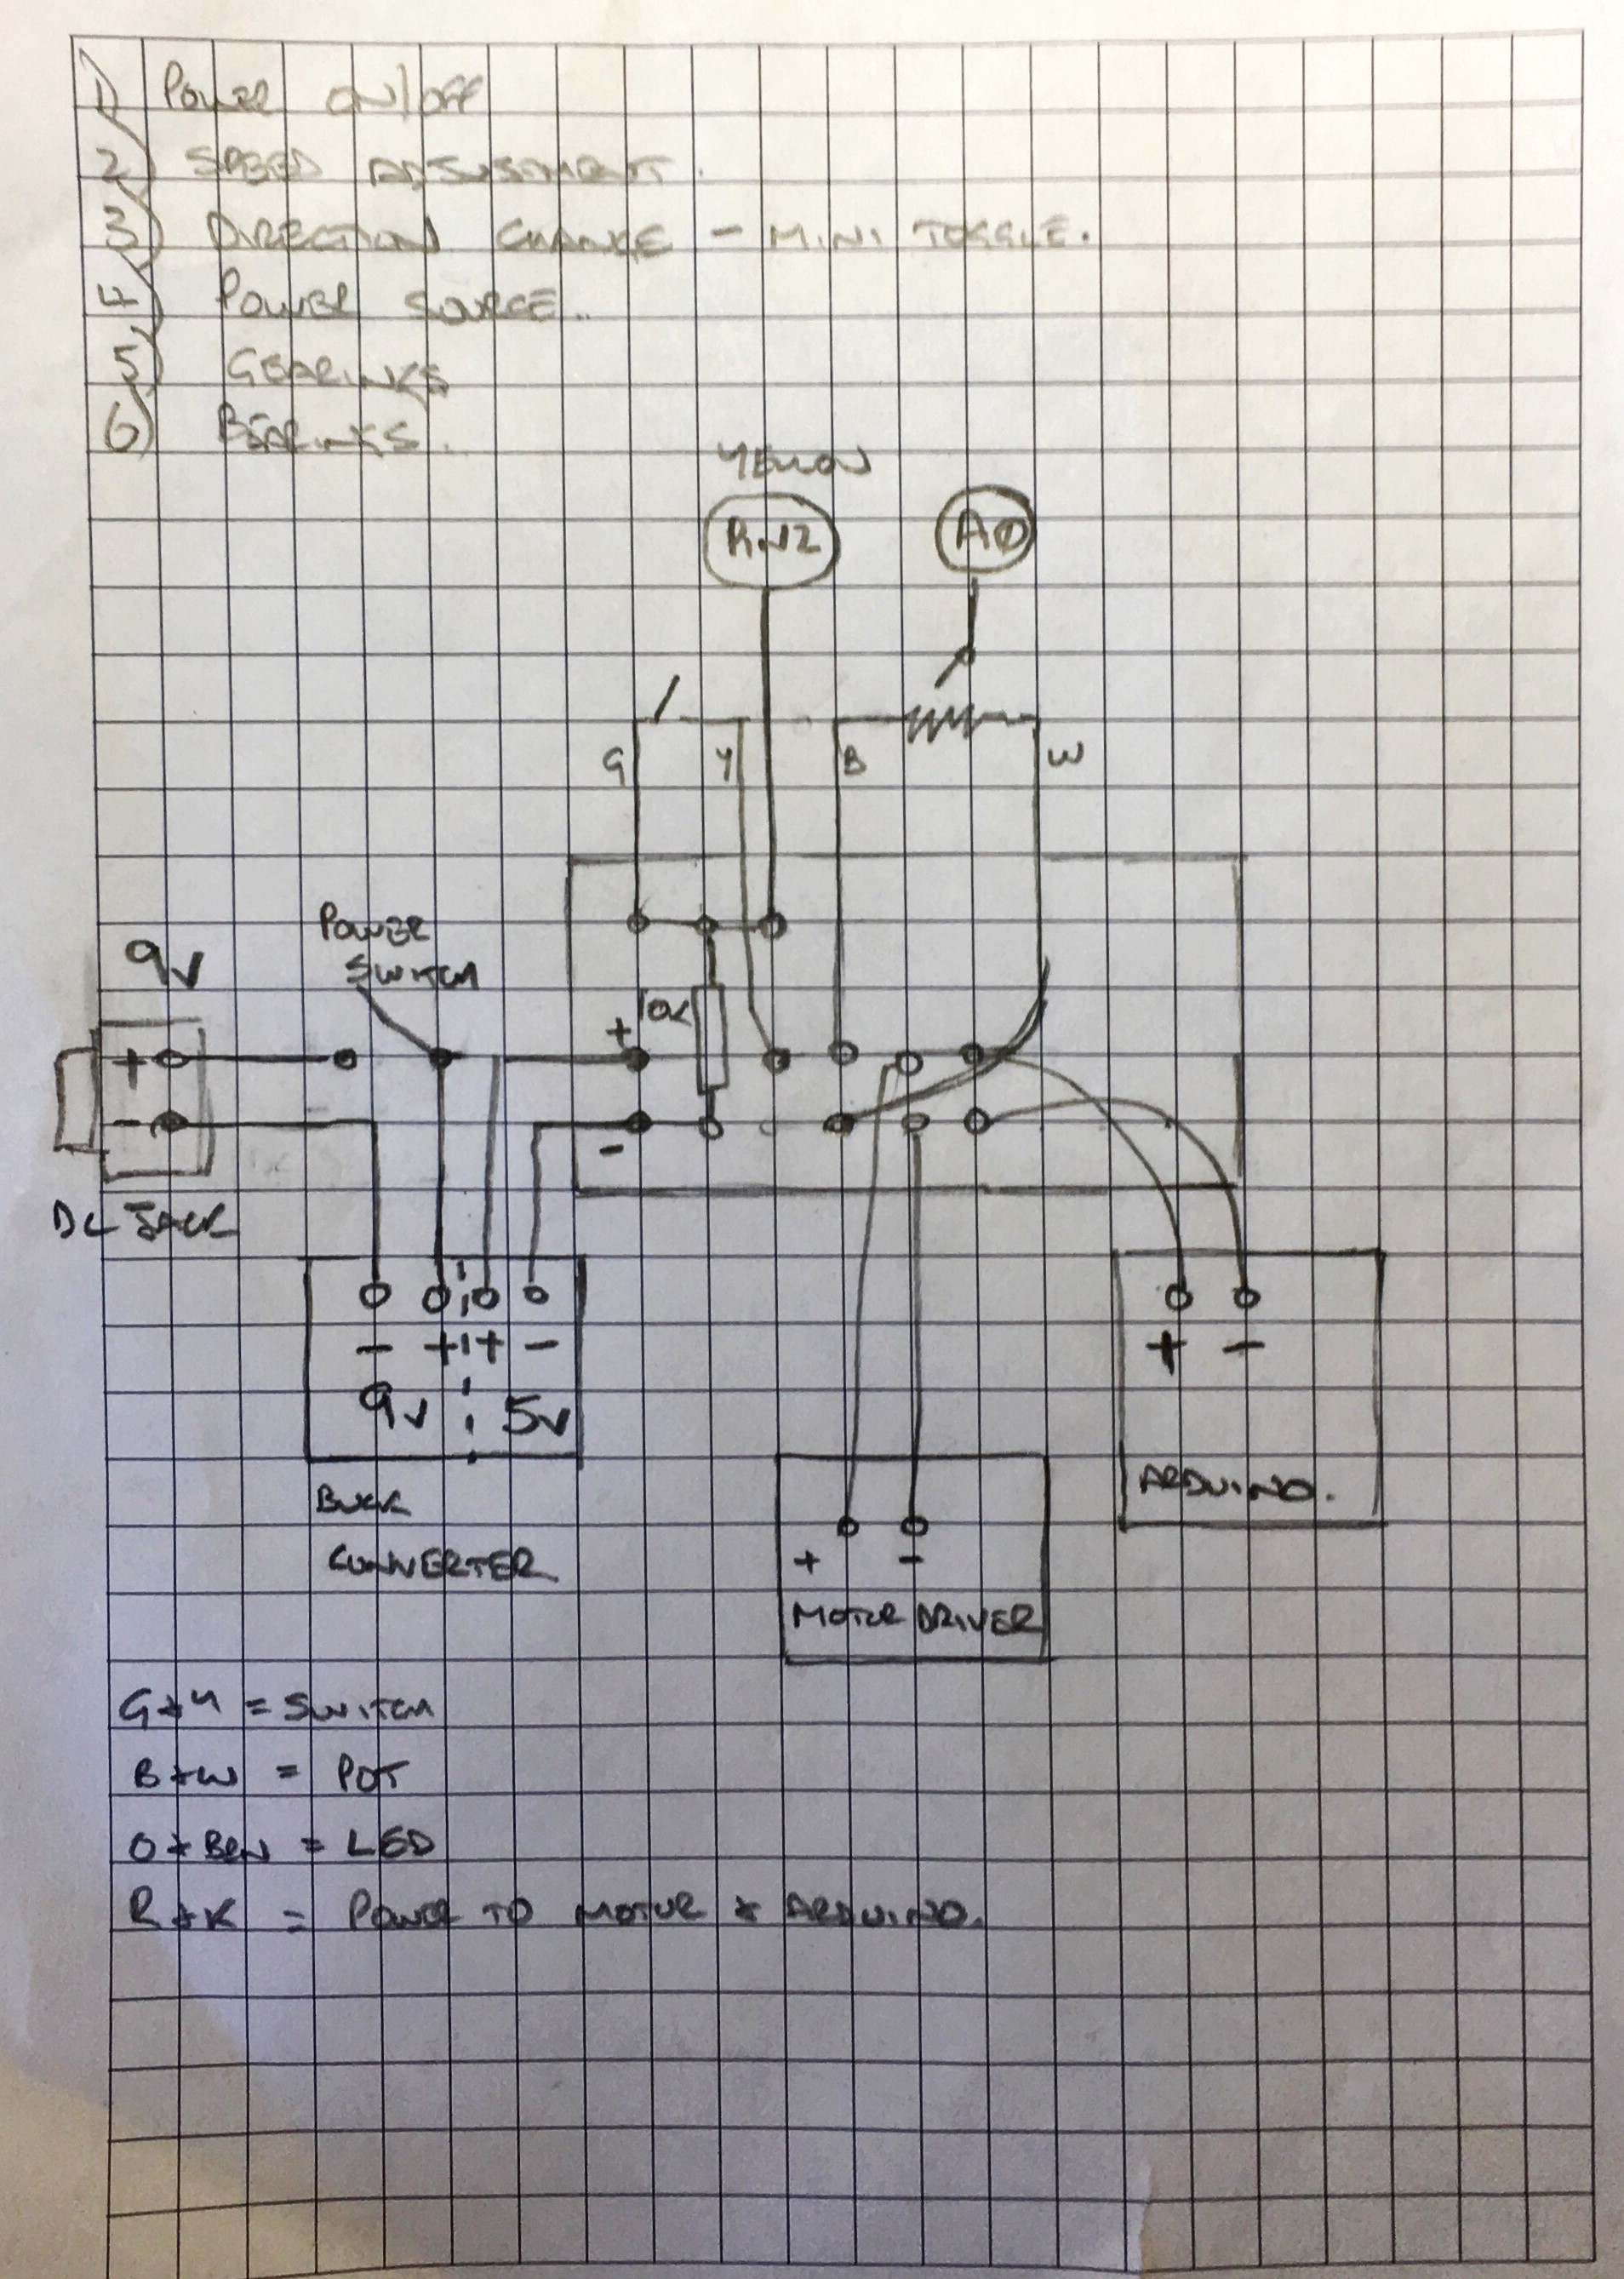 1) POWER ON/OFF
2) SPEED ADJUSTMENT.
3) DIRECTION CHANGE - MINI TOGGLE.
4) POWER SOURCE..
5) GEARINGS
6) BEARINGS.
YELLOW
PIN2 A0
G Y B W
POWER
SWITCH
9V
10K
+
+
-
-
DC JACK
- + + -
9V 5V
+ -
ARDUINO.
BUCK
CONVERTER
+ -
MOTOR DRIVER
G+Y = SWITCH
B+W = POT
O+BRN = LED
R+K = POWER TO MOTOR + ARDUINO.